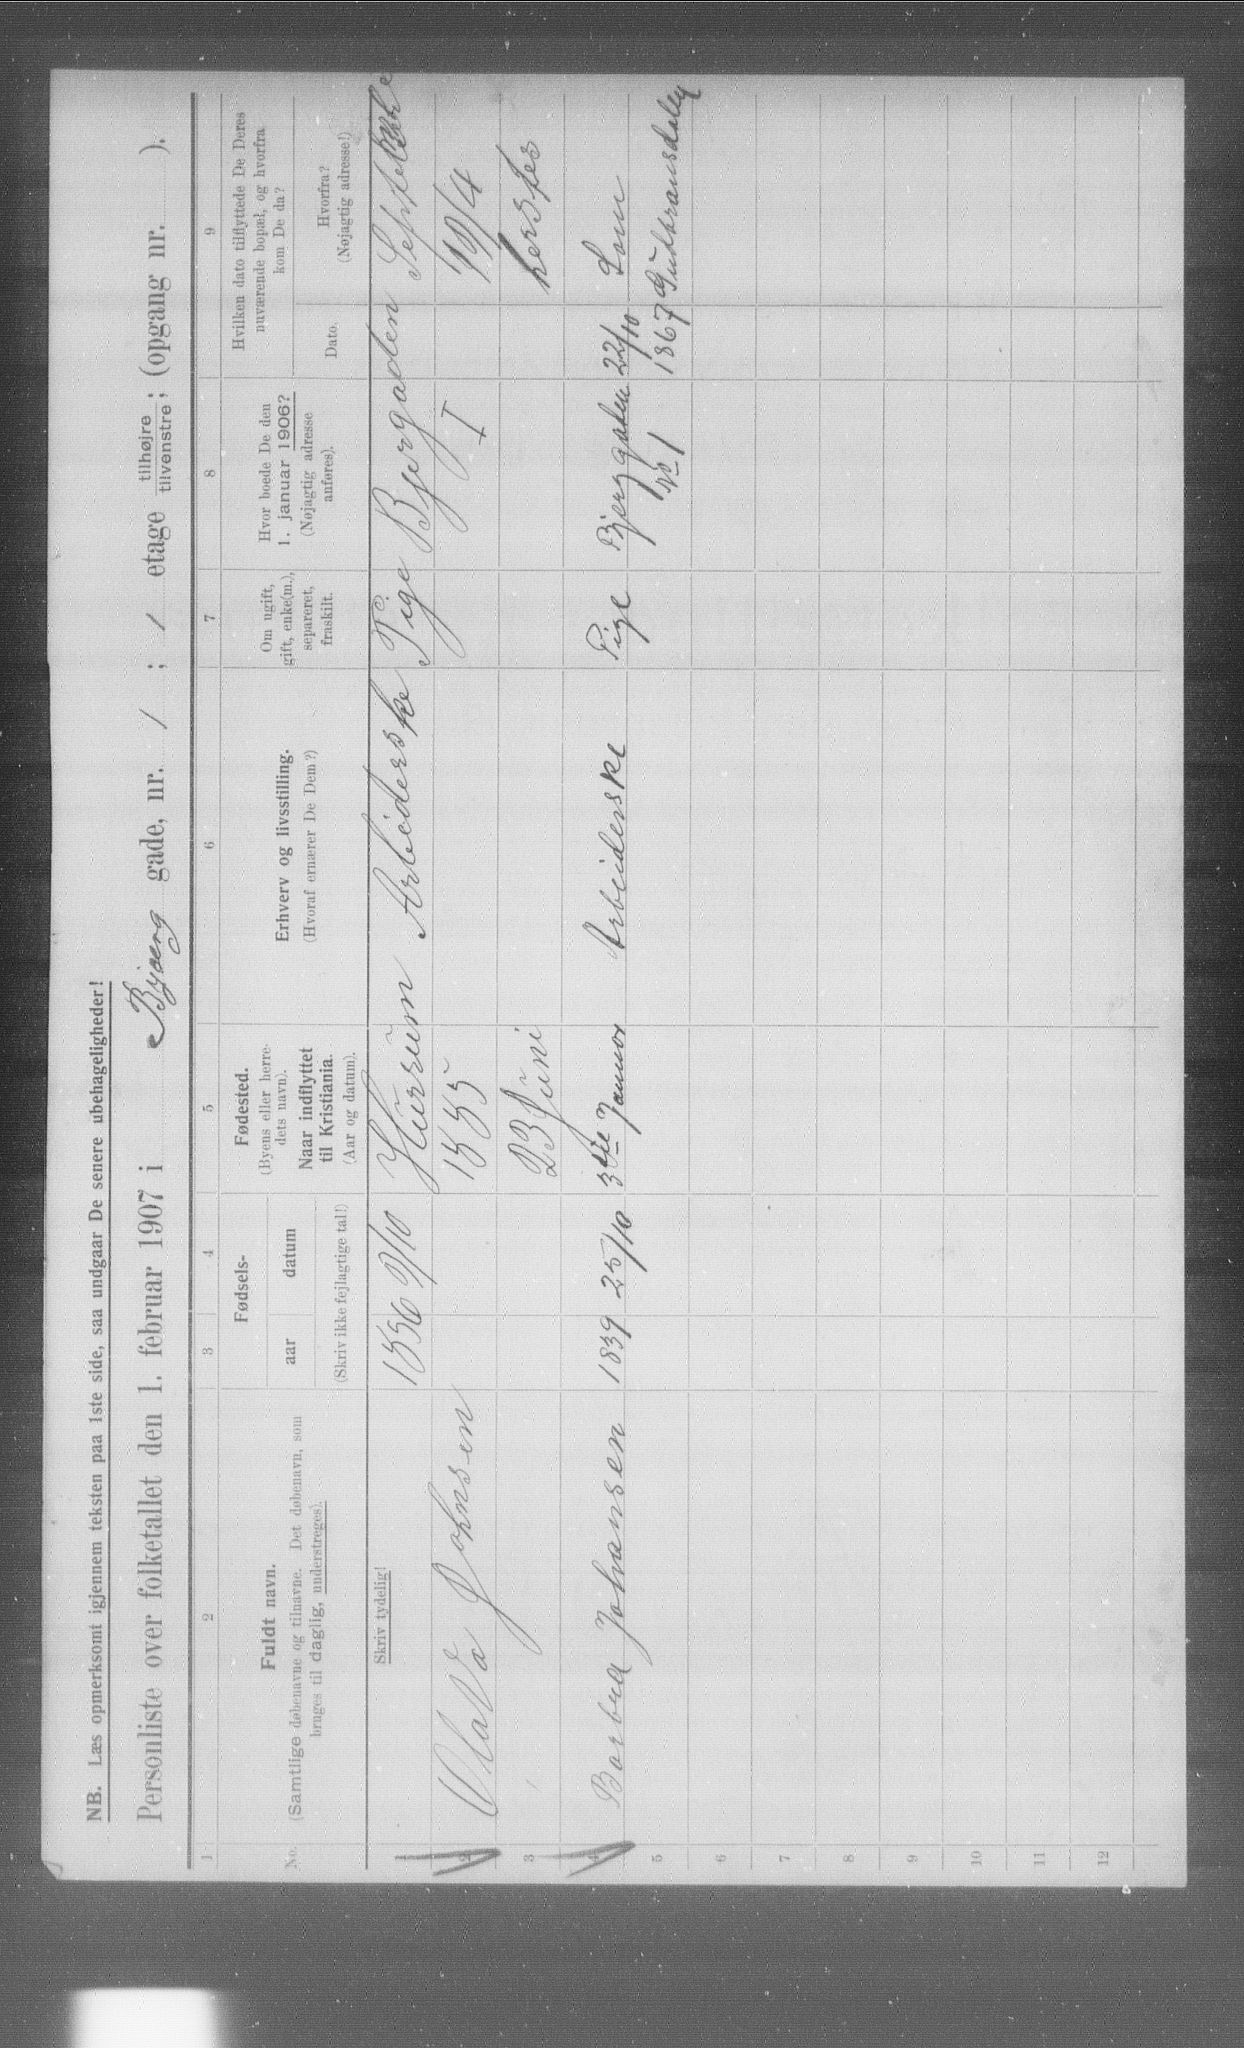 NB. Læs opmerksomt igjennem teksten paa 1ste side, saa undgaar De senere ubehageligheder!
Personliste over folketallet den 1. februar 1907 i Bjoerg gade, nr. 1; 1 etage tilhøjre tilvenstre; (opgang nr. ).
1 2 3 4 5 6 7 8 9
No.
Fuldt navn.
(Samtlige døbenavne og tilnavne. Det døbenavn, som
bruges til daglig, understreges).
Fødsels-
aar datum
(Skriv ikke fejlagtige tal!)
Fødested.
(Byens eller herre-
dets navn).
Naar indflyttet
til Kristiania.
(Aar og datum).
Erhverv og livsstilling.
(Hvoraf ernærer De Dem?)
Om ugift,
gift, enke(m.),
separeret,
fraskilt.
Hvor boede De den
1. januar 1906?
(Nøjagtig adresse
anføres).
Hvilken dato tilflyttede De Deres
nuværende bopæl, og hvorfra
kom De da?
Dato.
Hvorfra?
(Nøjagtig adresse!)
Skriv tydelig!
1 1856 9/10 Hurum Arbeiderske Pige Bjergaden
2 Olava Johnsen 1885 I
3 23 Juni
4 Barbra Johansen 1839 25/10 3die Januar Arbeiderske Pige Bjerggaden 22/10 Lom
5 No 1 1867 Gulbransdalen
6
7
8
9
10
11
12